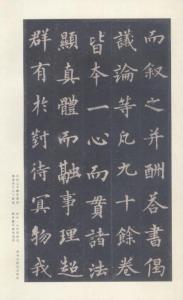 而叙之并酬答書偈
議論等凡九十餘卷
皆本一心而貫諸法
顯真體而融事理超
群有於對待冥物我